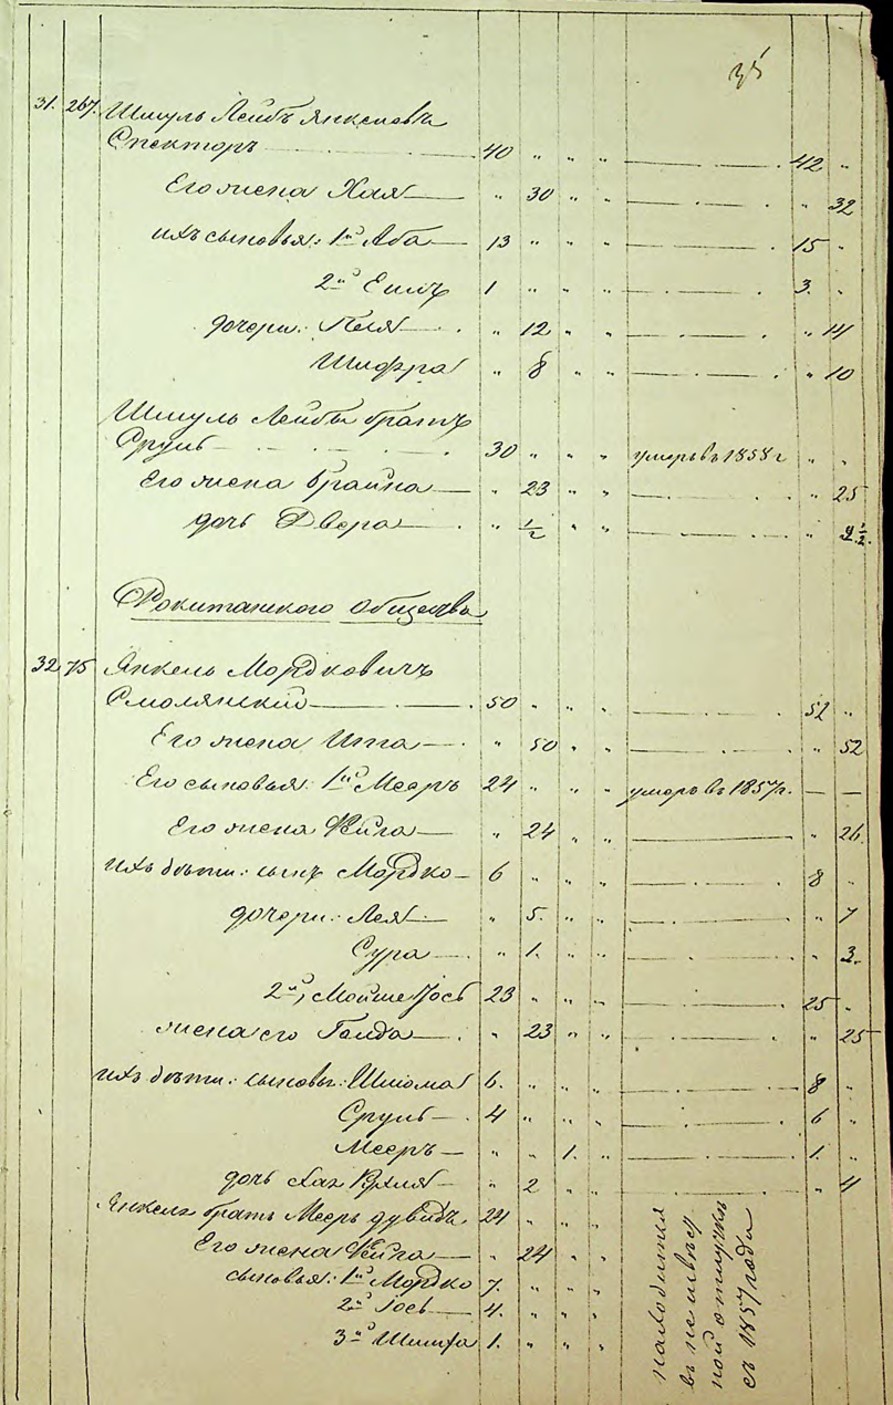 35
31. 267. Шмуль Лейбъ Янкелевъ
Спекторъ 40 „ „ „ 42 „
Его жена Хая „ 30 „ „ „ 32
ихъ сыновья: 1й Аба 13 „ „ „ 15 „
2й Ешіъ 1 „ „ „ 3. „
дочери: Песя „ 12 „ „ „ 14
Шифра „ 8 „ „ „ 10
Шмуль Лейбы братъ
Сруль 30 „ „ „ умеръ въ 1858 г „ „
Его жена Брайна „ 23 „ „ „ 25
дочь Двера „ 1/2 „ „ „ 2 1/2.
Рокитанского Общества
32. 75 Янкель Мордковичъ
Смолянскій 50 „ „ „ 52 „
Его жена Ита „ 50 „ „ „ 52
Его сыновья: 1й Мееръ 24 „ „ „ умеръ въ 1857 г. — —
Его жена Фейга „ 24 „ „ „ 26.
ихъ дѣти: сынъ Мордко 6 „ „ „ 8 „
дочери: Лея „ 5. „ „ „ 7
Сура „ 1. „ „ „ 3.
2й, Мойше Іось 23 „ „ „ 25 „
жена его Голда „ 23 „ „ „ 25
ихъ дѣти: сыновья: Шліома 6. „ „ „ 8 „
Сруль 4 „ „ „ 6 „
Мееръ „ „ 1. „ 1. „
дочь Хая „ 2 „ „ „ 4
Янкеля братъ Мееръ Дувидъ. 24 „ „ „
Его жена Фейга „ 24 „ „
сыновья: 1й Мордко 7. „ „ „
2й Іось 4. „ „ „
3й 1. „ „ „
находится
въ неизвѣст
ной отлучкѣ
съ 1857 года